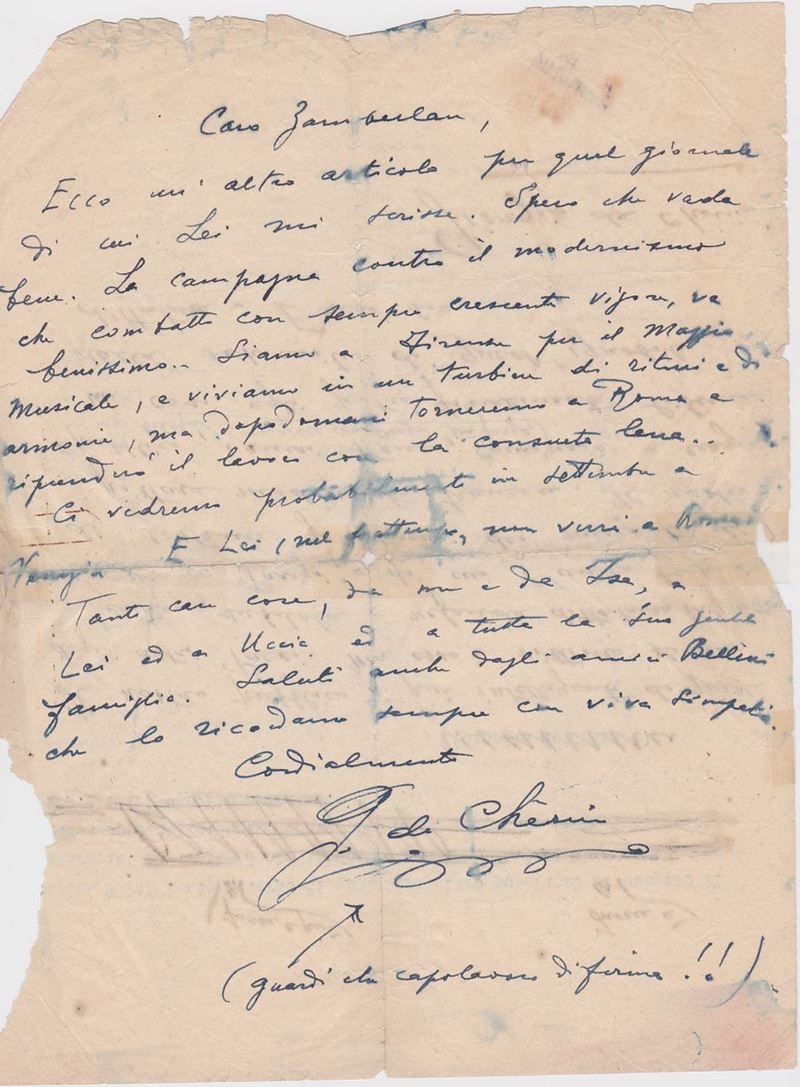 Caro Zamberlan,
Ecco un' altro articolo per quel giornale
di cui Lei mi scrisse. Spero che vada
bene. La campagna contro il modernismo
che combatto con sempre crescente vigore, va
benissimo.. Siamo a Firenze per il Maggio
Musicale, e viviamo in un turbine di ritmi e di
armonie, ma dopodomani torneremo a Roma e
riprenderò il lavoro con la consueta lena..
Ci vedremo probabilmente in settembre a
Venezia. E Lei, nel frattempo, non verrà a Roma
Tante care cose, da me e da Isa, a
Lei ed a Uccia ed a tutta la Sua gentile
famiglia. Saluti anche dagli amici Bellini
che lo ricordano sempre con viva simpatia.
Cordialmente
G. de Chirico
(guardi che capolavoro di firma!!)